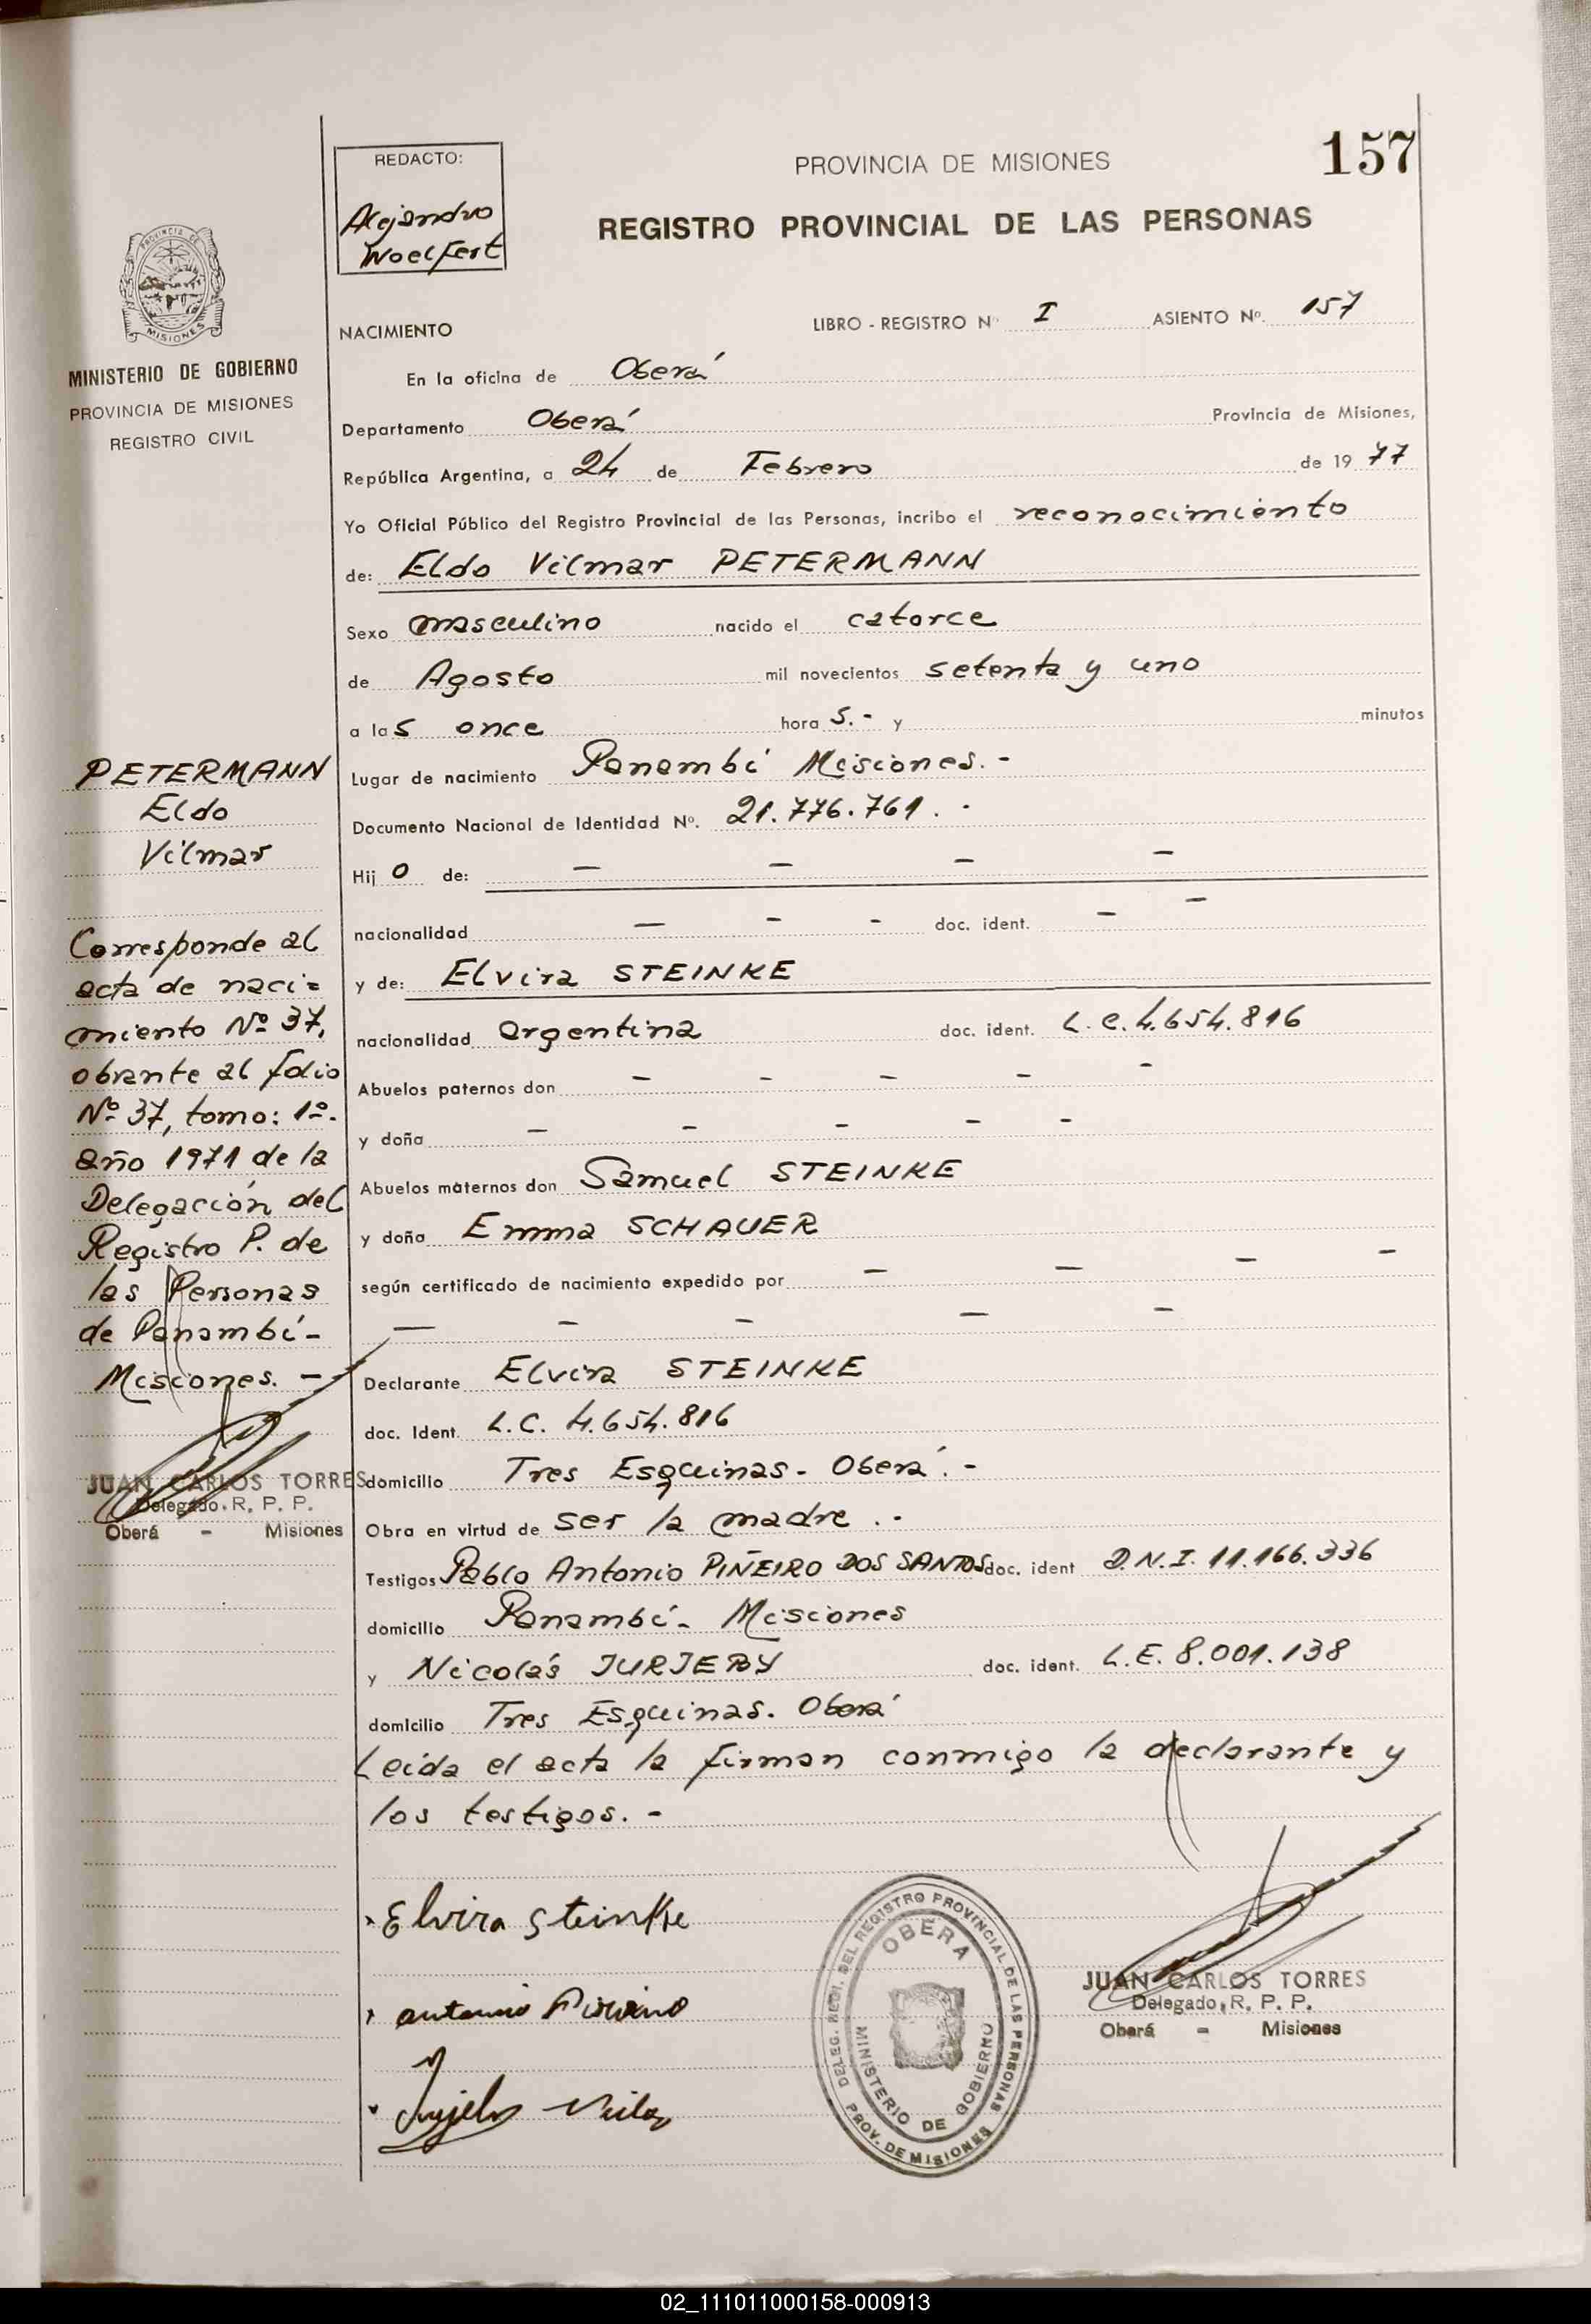 157
REDACTO:
Alejandro
Woelfert
PROVINCIA DE MISIONES
REGISTRO PROVINCIAL DE LAS PERSONAS
PROVINCIA DE
MISIONES
MINISTERIO DE GOBIERNO
PROVINCIA DE MISIONES
REGISTRO CIVIL
NACIMIENTO LIBRO - REGISTRO Nº I ASIENTO Nº. 157
En la oficina de Oberá
Departamento Oberá Provincia de Misiones,
República Argentina, a 24 de Febrero de 19 77
Yo Oficial Público del Registro Provincial de las Personas, incribo el reconocimiento
de: Eldo Vilmar PETERMANN
Sexo masculino nacido el catorce
de Agosto mil novecientos setenta y uno
a las once hora s.- y minutos
Lugar de nacimiento Panambí Misiones.-
Documento Nacional de Identidad Nº. 21.776.761.-
Hijo de: — — — —
nacionalidad — — - doc. ident. — —
y de: Elvira STEINKE
nacionalidad argentina doc. ident. L.C. 4.654.816
Abuelos paternos don — — — — —
y doña — — — — —
Abuelos maternos don Samuel STEINKE
y doña Emma SCHAUER
según certificado de nacimiento expedido por — — — —
— — — — —
Declarante Elvira STEINKE
doc. Ident. L.C. 4.654.816
domicilio Tres Esquinas - Oberá.-
Obra en virtud de ser la madre.-
Testigos Pablo Antonio PIÑEIRO DOS SANTOS doc. ident D.N.I. 11.166.336
domicilio Panambí - Misiones
y Nicolás JURJEBY doc. ident. L.E. 8.001.138
domicilio Tres Esquinas. Oberá
Leída el acta la firman conmigo la declarante y
los testigos.-
PETERMANN
Eldo
Vilmar
Corresponde al
acta de naci=
miento Nº 37,
obrante al folio
Nº 37, tomo: 1º.
año 1971 de la
Delegación del
Registro P. de
las Personas
de Panambí-
Misiones.-
JUAN CARLOS TORRES
Delegado R. P. P.
Oberá - Misiones
Elvira Steinke
antonio
DELEG. REGI. DEL REGISTRO PROVINCIAL DE LAS PERSONAS
OBERA
MINISTERIO DE GOBIERNO
PROV. DE MISIONES
JUAN CARLOS TORRES
Delegado R. P. P.
Oberá - Misiones
02_111011000158-000913